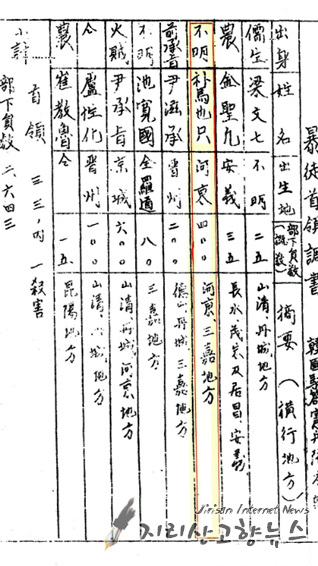 暴徒首領調書
出身 姓名 出生地 部下員数(概数) 摘要(橫行地方)
儒生 梁文七 不明 二五 山清丹城地方
農 金聖九 安義 三五 長水茂朱及居昌、安義
不明 朴馬也只 河東 四〇 河東、三嘉地方
前承旨 尹滋承 晋州 二〇〇 丹城、三嘉地方
不明 池寬國 全羅道 八〇 三嘉地方
火賊 尹承旨 京城 六〇 山清丹城河東地方
仝 盧性化 晋州 一〇〇 山清、丹城地方
農 崔敬魯 仝 一五 昆陽地方
小計 首領 三三、内 一殺害
部下員数 二、六四三
Jirisan Internet News
지리산고향뉴스